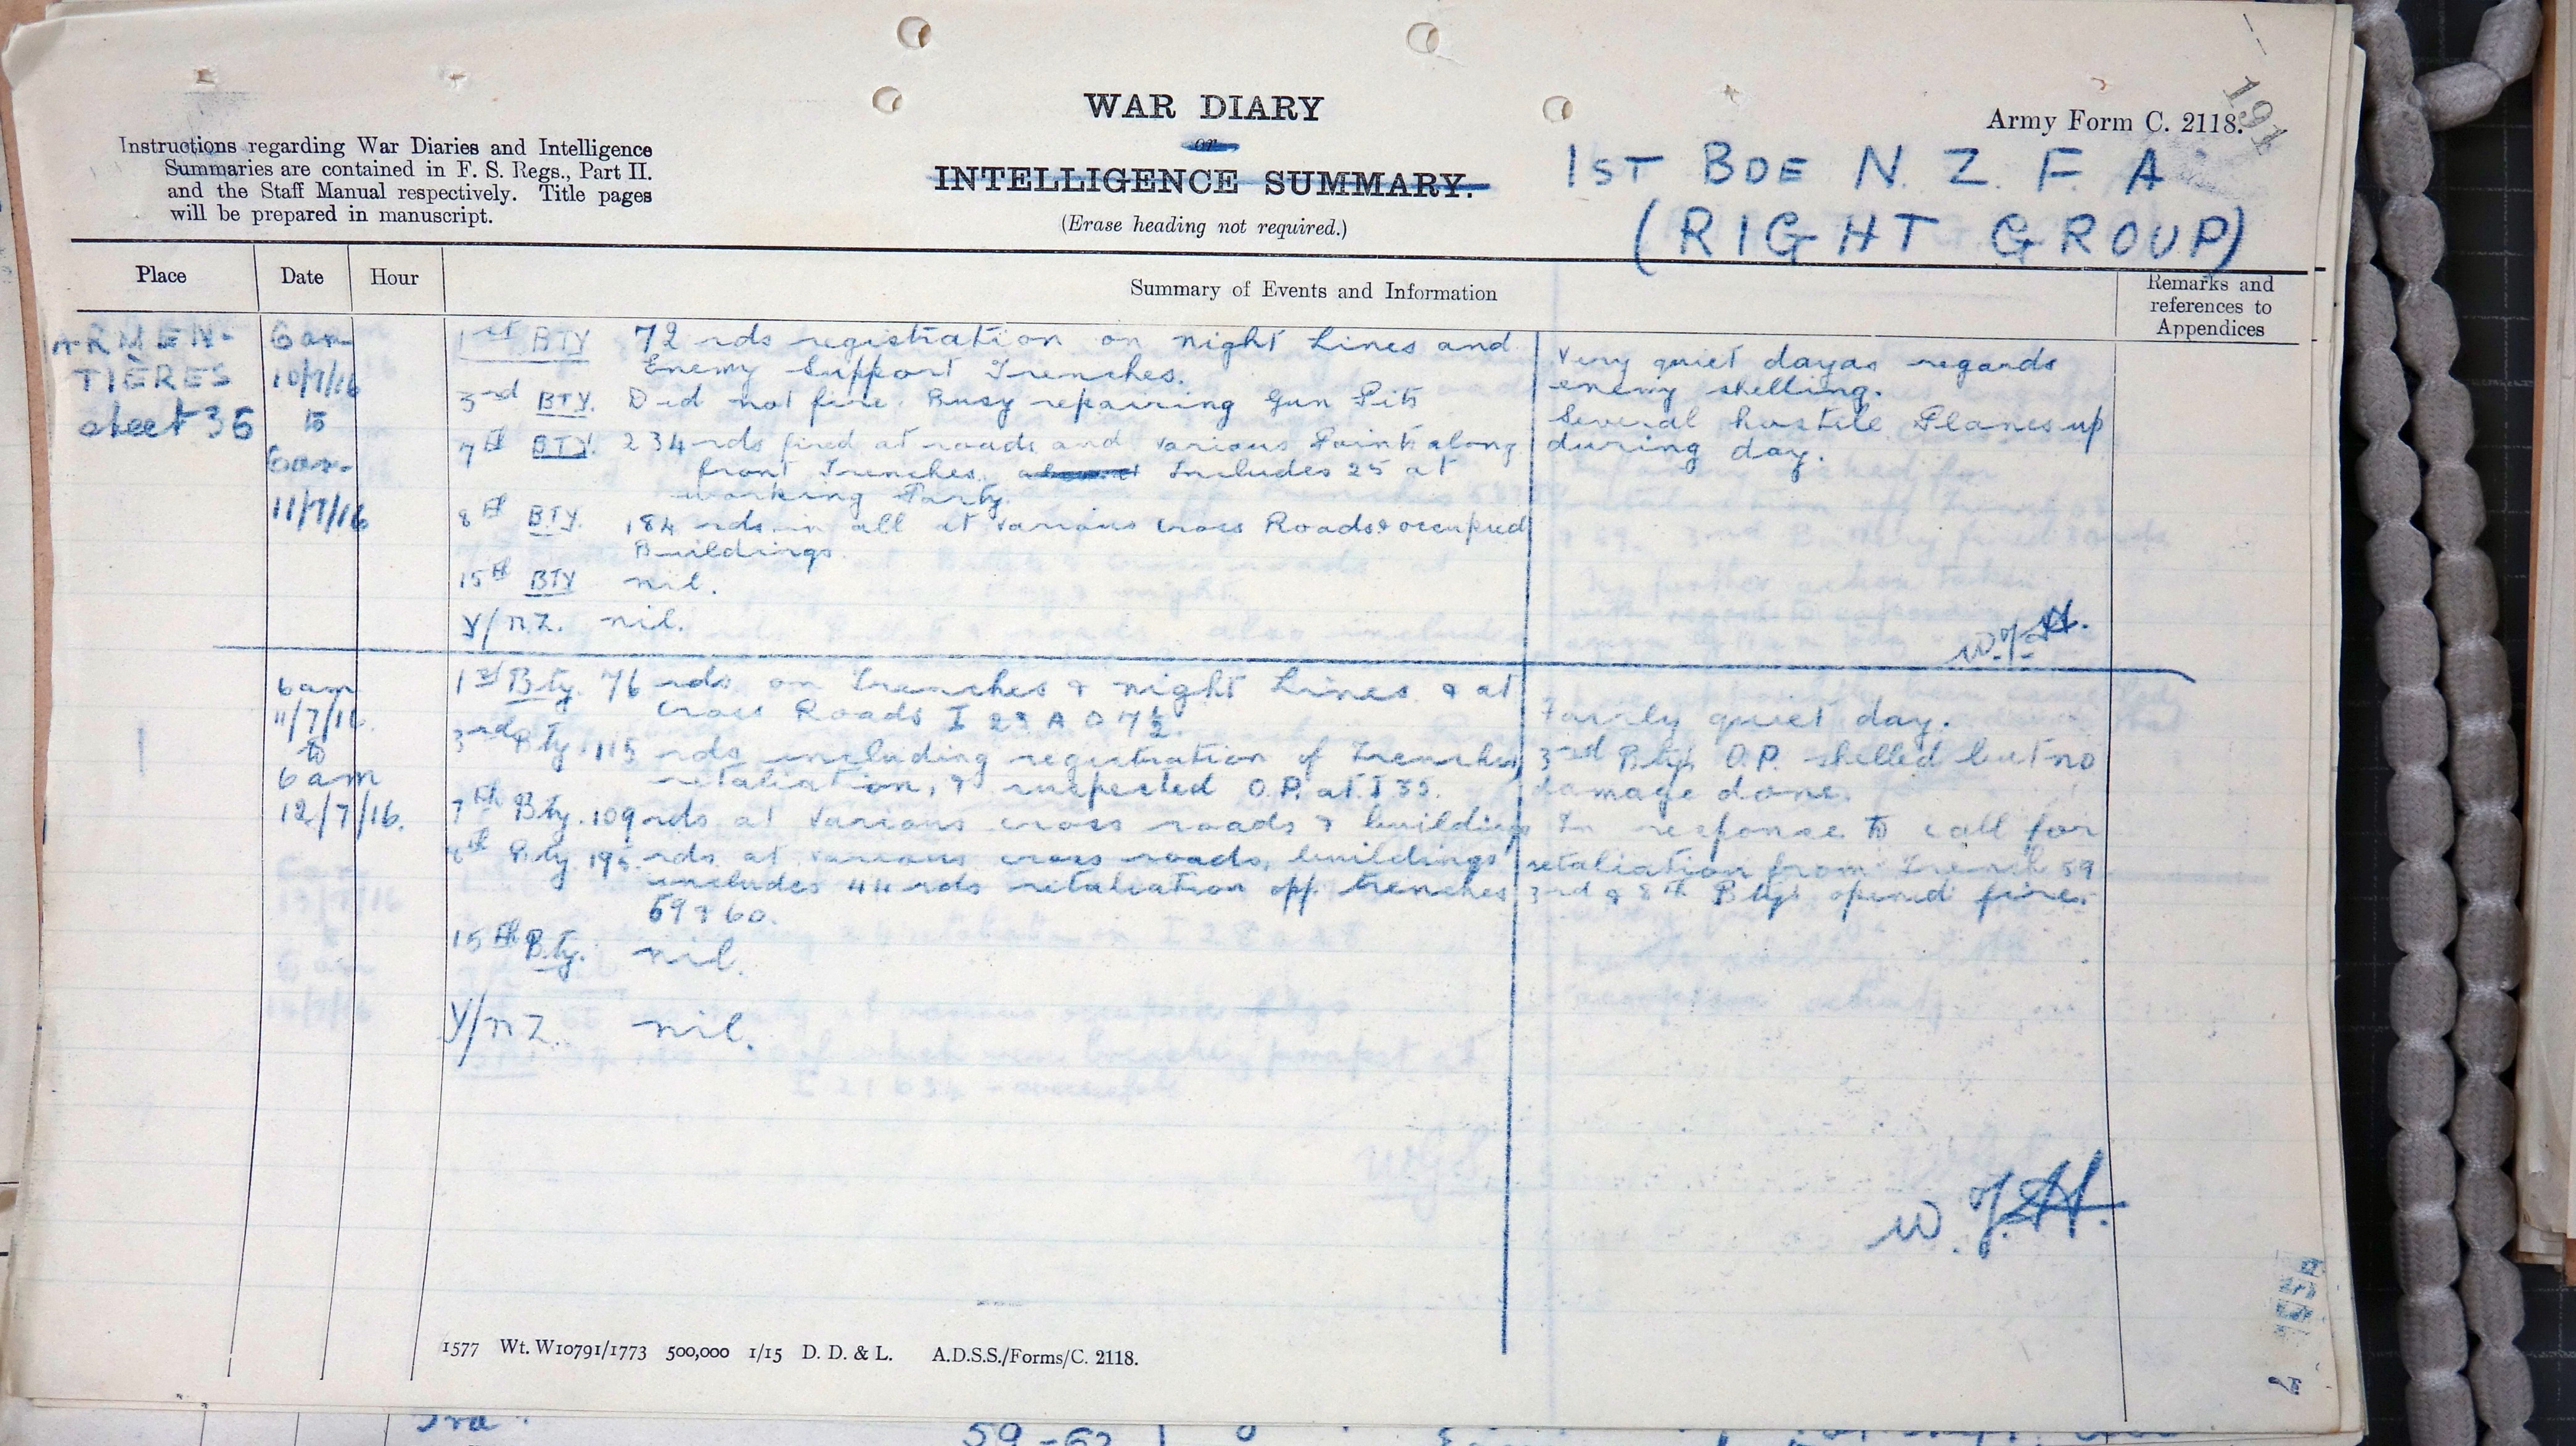 WAR DIARY
or
INTELLIGENCE SUMMARY.
(Erase heading not required.)
Instructions regarding War Diaries and Intelligence
Summaries are contained in F. S. Regs., Part II.
and the Staff Manual respectively. Title pages
will be prepared in manuscript.
Army Form C. 2118.
191
1ST BDE N. Z. F. A
(RIGHT GROUP)
Place
Date
Hour
Summary of Events and Information
Remarks and
references to
Appendices
ARMEN-
TIÈRES
sheet 36
6 am
10/7/16
to
6 am
11/7/16
1st BTY 72 rds registration on night Lines and
Enemy Support Trenches.
3rd BTY. Did not fire. Busy repairing Gun Pits
7th BTY. 234 rds fired at roads and various Points along
front Trenches. Includes 25 at
working Party.
8th BTY. 184 rds in all at various cross Roads & occupied
Buildings.
15th BTY nil.
Y/N.Z. nil.
Very quiet day as regards
enemy shelling.
Several hostile Planes up
during day.
W.J.H.
6 am
11/7/16.
to
6 am
12/7/16.
1st Bty. 76 rds on Trenches & night Lines & at
cross Roads I 29 A 0 7½.
3rd Bty. 115 rds including registration of Trenches,
retaliation, & suspected O.P. at I 35.
7th Bty. 109 rds at various cross roads & buildings
8th Bty. 195 rds at various cross roads, buildings
includes 44 rds retaliation opp. trenches
59 & 60.
15th Bty. nil.
Y/NZ. nil.
Fairly quiet day.
3rd Btys O.P. shelled but no
damage done.
In response to call for
retaliation from Trench 59
3rd & 8th Btys opened fire.
W.J.H.
1577 Wt. W10791/1773 500,000 1/15 D. D. & L. A.D.S.S./Forms/C. 2118.
59-62